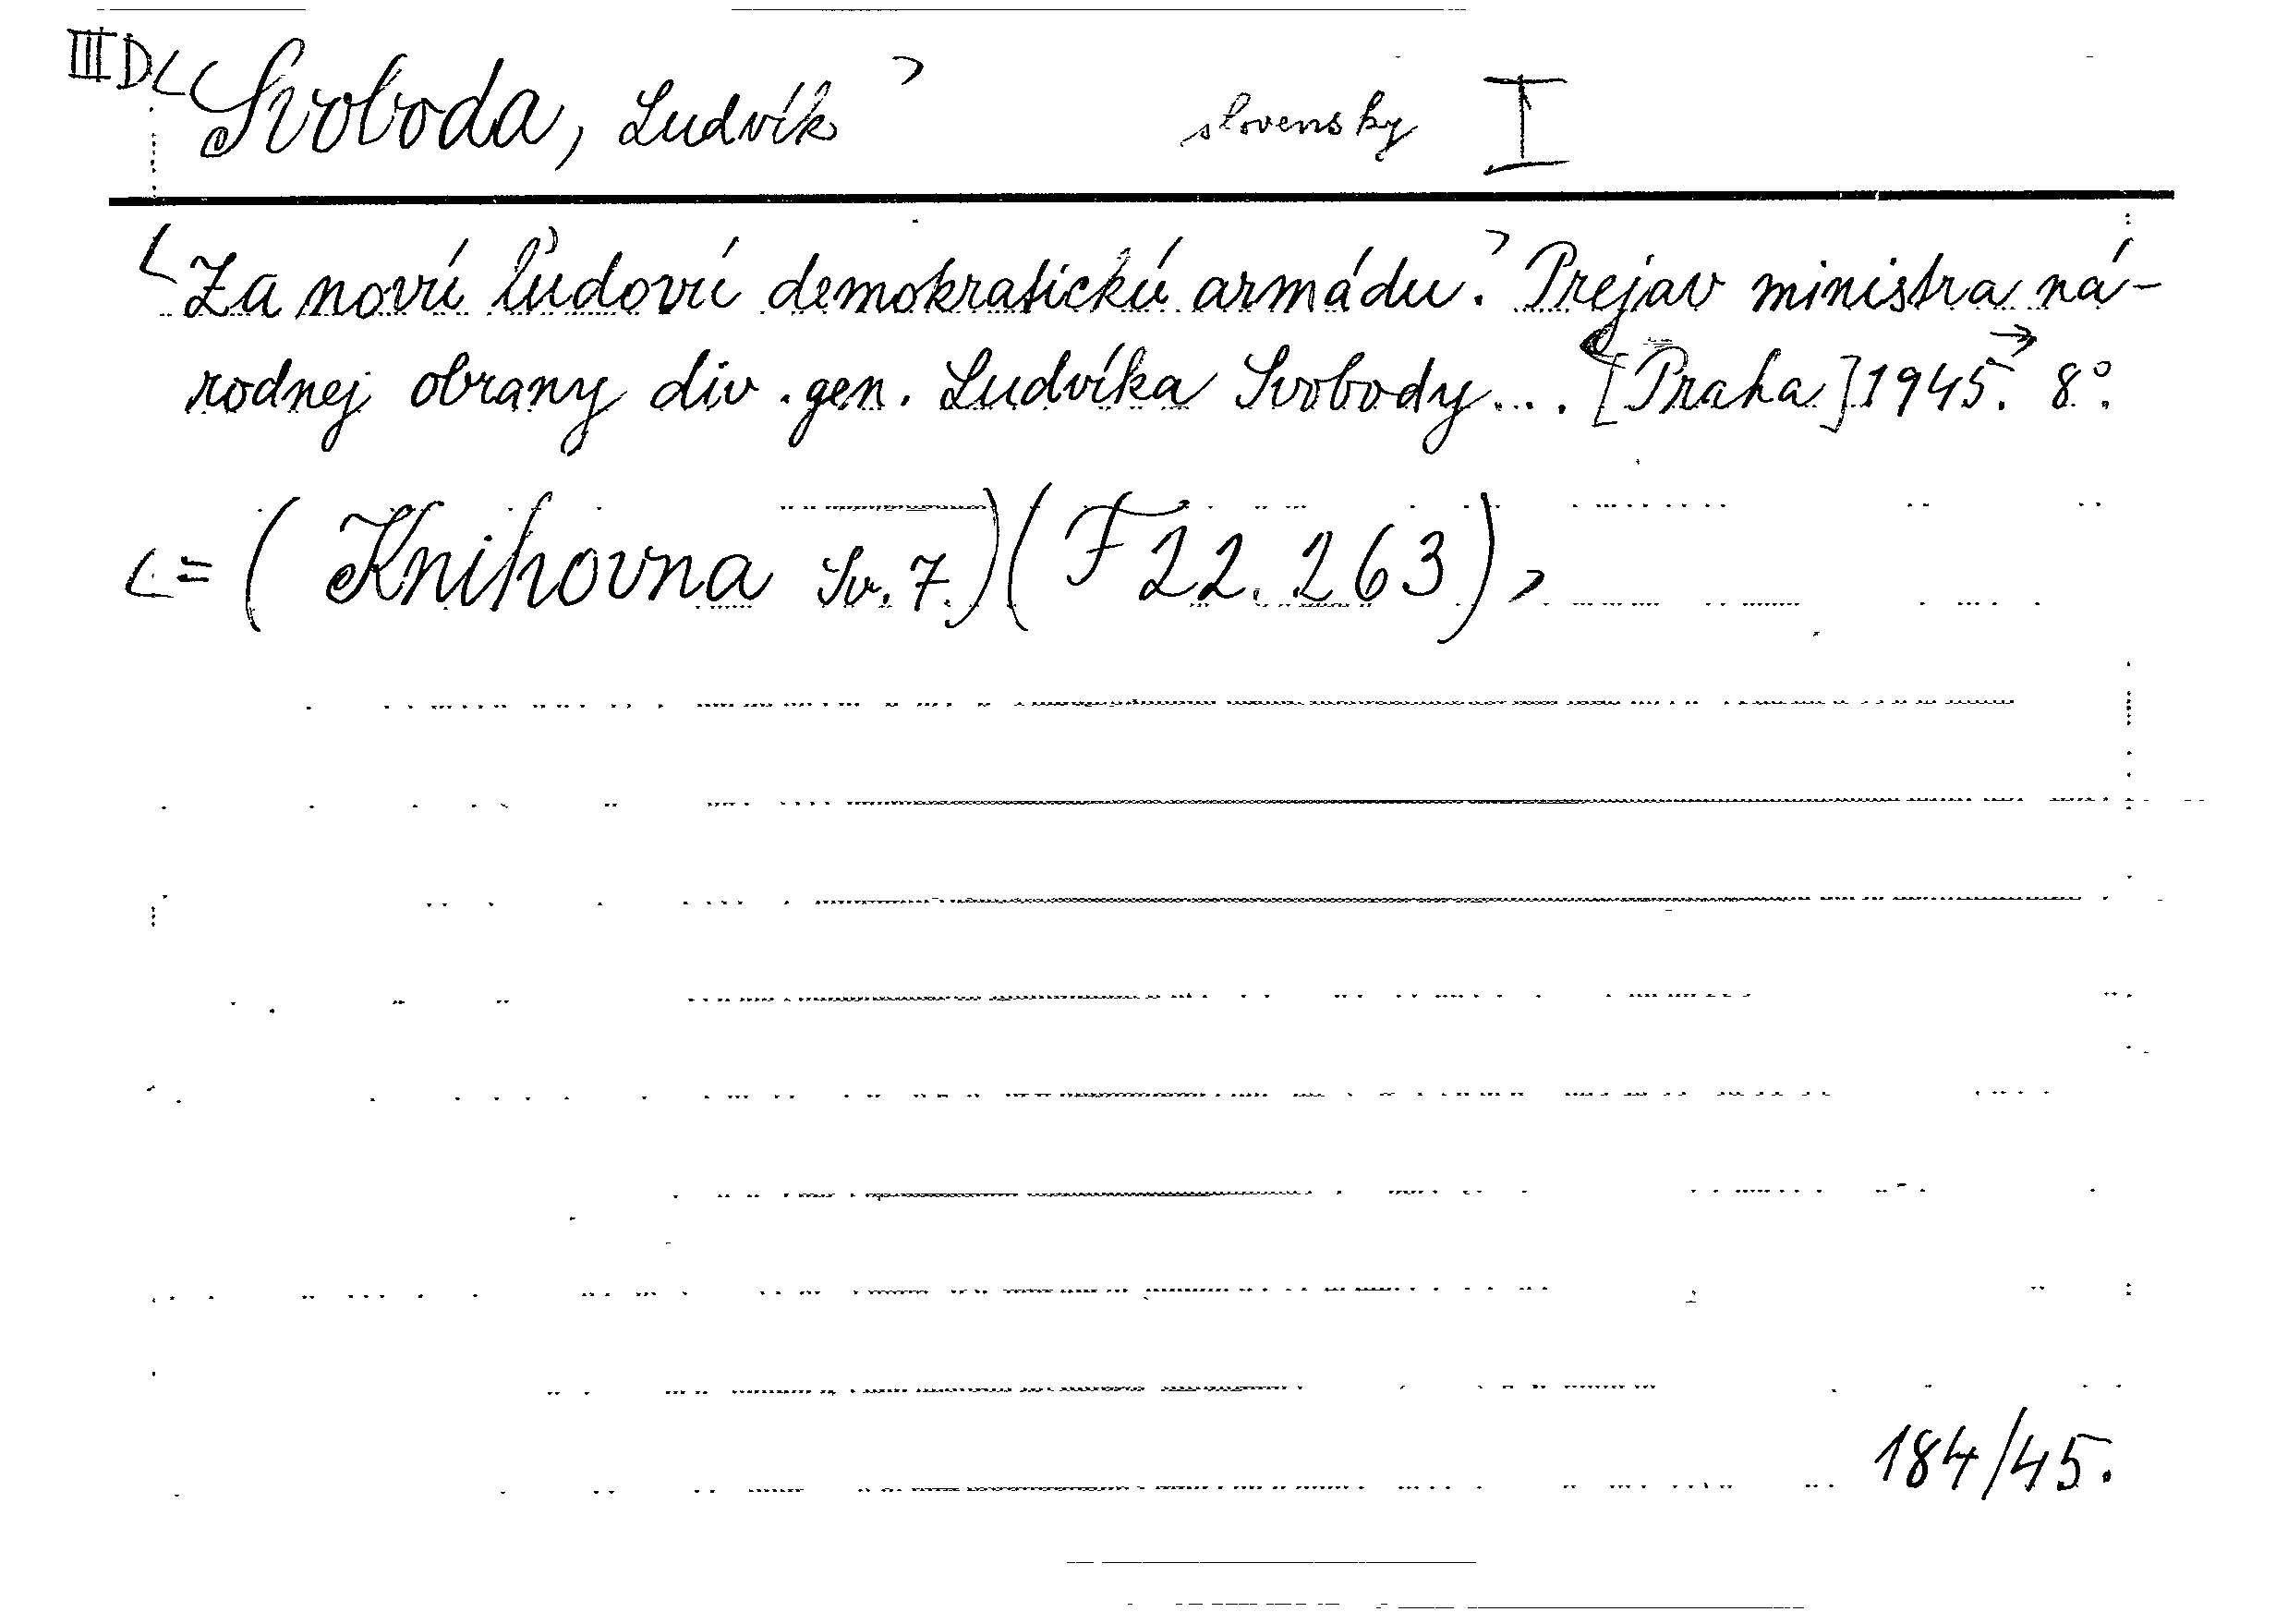 III D < Svoboda, Ludvík > slovensky I
< Za novú ľudovú demokratickú armádu. > Prejav ministra ná-
rodnej obrany div. gen. Ludvíka Svobody... [Praha] 1945. 8°.
< = (Knihovna Sv. 7.) (F 22.263) >
184/45.